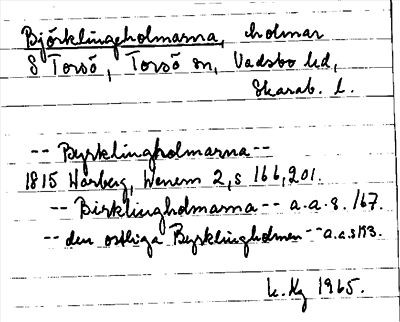 Björklingholmarna, holmar
S Torsö, Torsö sn, Vadsbo hd,
Skarab. l.
-- Byrklingholmarna --
1815 Warberg, Wenern 2, s 166, 201.
-- Birklingholmarna -- a.a.s. 167.
-- den ostliga Byrklingholmen -- a.a.s 173.
1965.